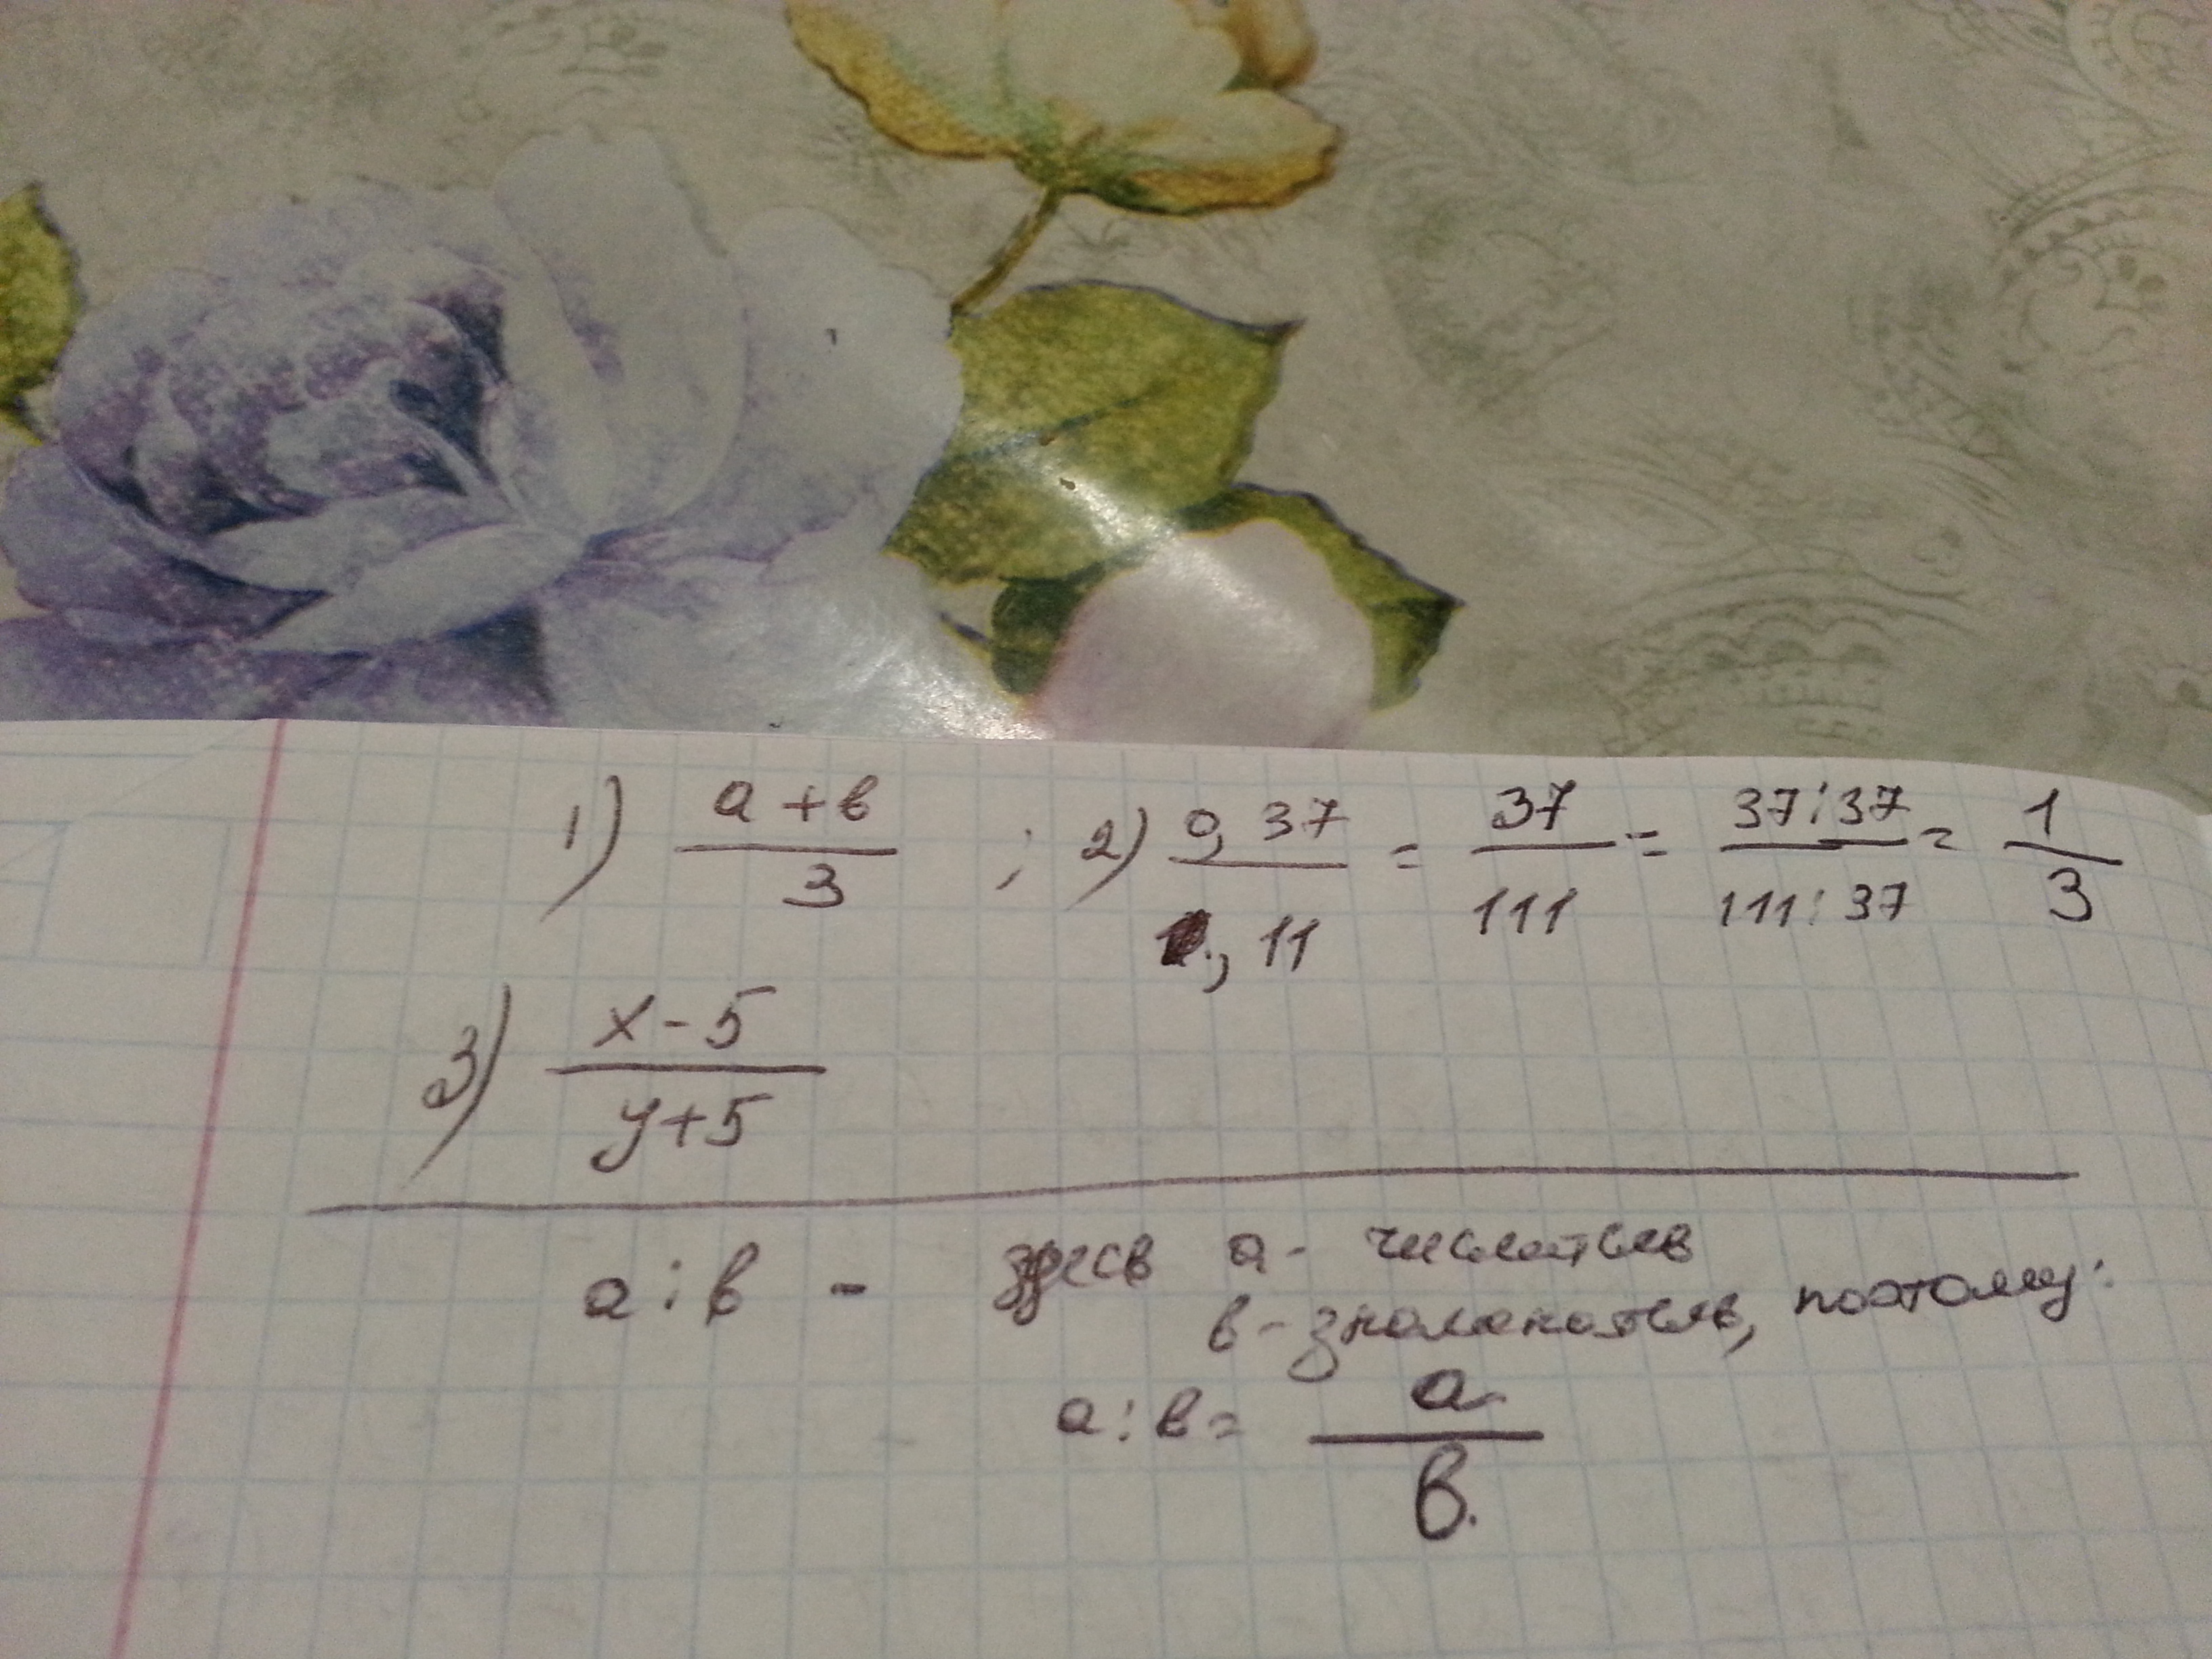 1) a+в / 3 ; 2) 0,37 / 1,11 = 37 / 111 = 37:37 / 111:37 = 1 / 3
3) x-5 / y+5
a:в - здесь а- числитель
в-знаменатель, поэтому:
a:в= a / в.